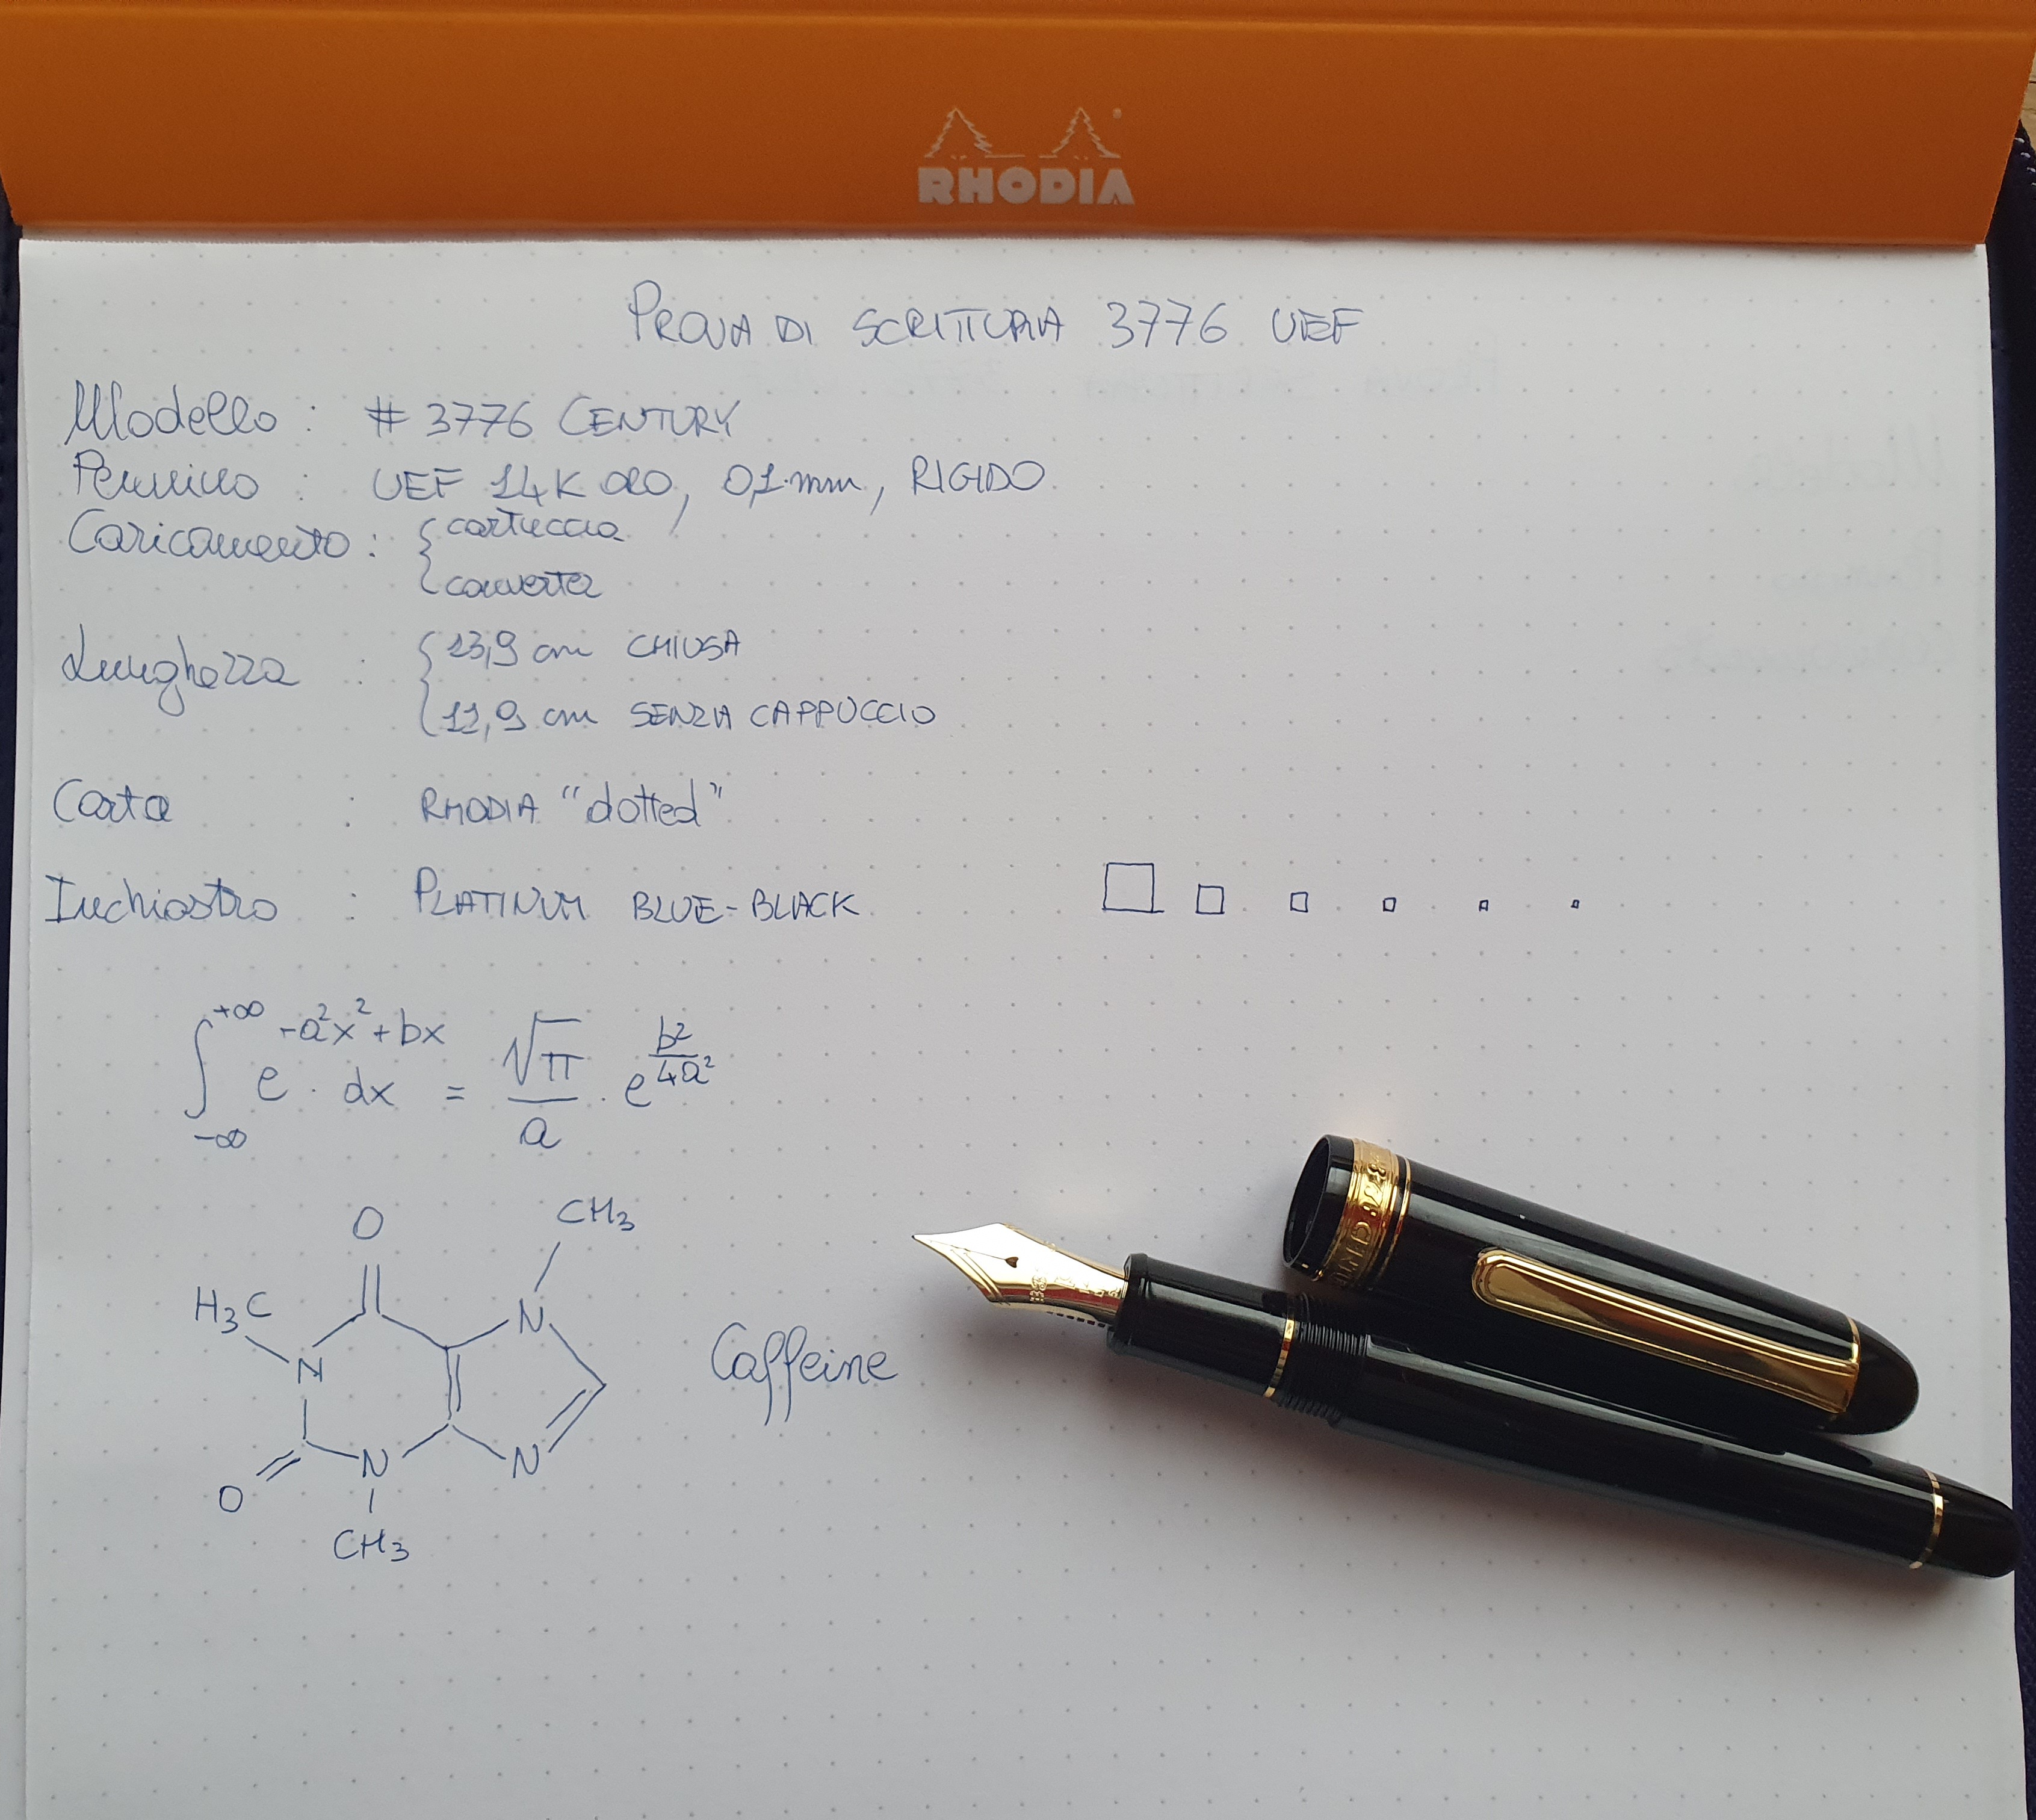 RHODIA
PROVA DI SCRITTURA 3776 UEF
Modello : # 3776 CENTURY
Pennino : UEF 14K ORO, 0,1 mm, RIGIDO
Caricamento : { cartuccia
converter
Lunghezza : { 13,9 cm CHIUSA
11,9 cm SENZA CAPPUCCIO
Carta : RHODIA “dotted”
Inchiostro : PLATINUM BLUE-BLACK
∫_{-∞}^{+∞} e^{-a²x²+bx} · dx = √π/a · e^{b²/4a²}
O
CH₃
H₃C
N
N
Caffeine
N
N
O
CH₃